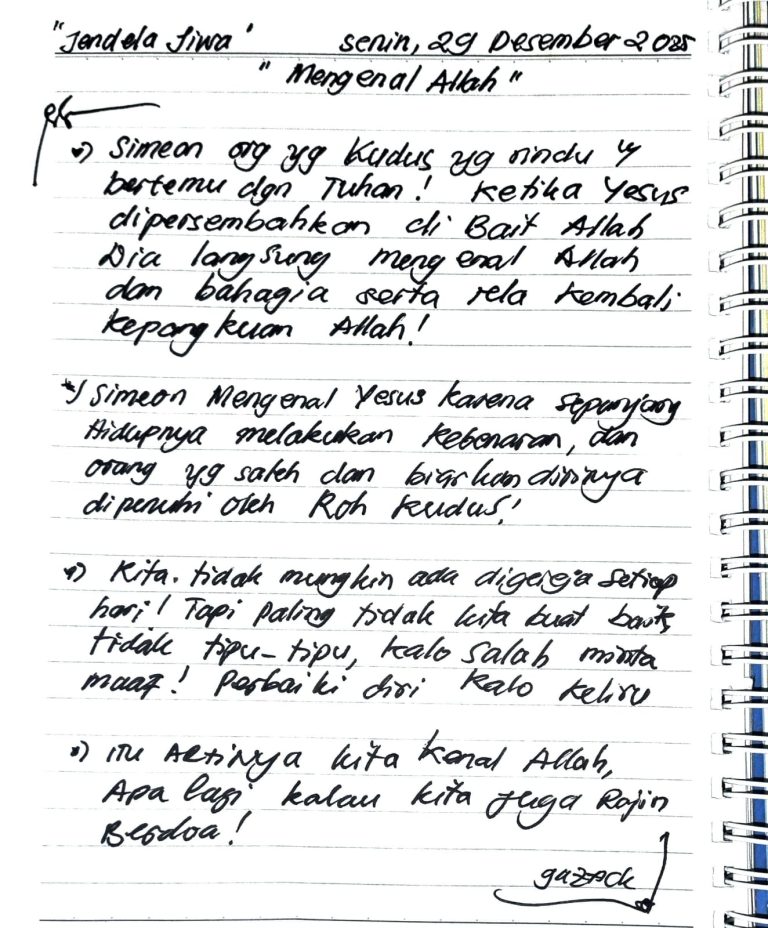 "Jendela Jiwa" Senin, 29 Desember 2025
"Mengenal Allah"
Simeon org yg Kudus yg rindu u/
bertemu dgn Tuhan! Ketika Yesus
dipersembahkan di Bait Allah
Dia langsung mengenal Allah
dan bahagia serta rela kembali
kepangkuan Allah!
Simeon Mengenal Yesus karena sepanjang
Hidupnya melakukan kebenaran, dan
orang yg saleh dan biarkan dirinya
dipenuhi oleh Roh Kudus!
Kita. tidak mungkin ada digereja setiap
hari! Tapi paling tidak kita buat
tidak tipu-tipu, kalo salah minta
maaf! Perbaiki diri kalo keliru
itu Artinya kita kenal Allah,
Apa lagi kalau kita juga Rajin
Berdoa!